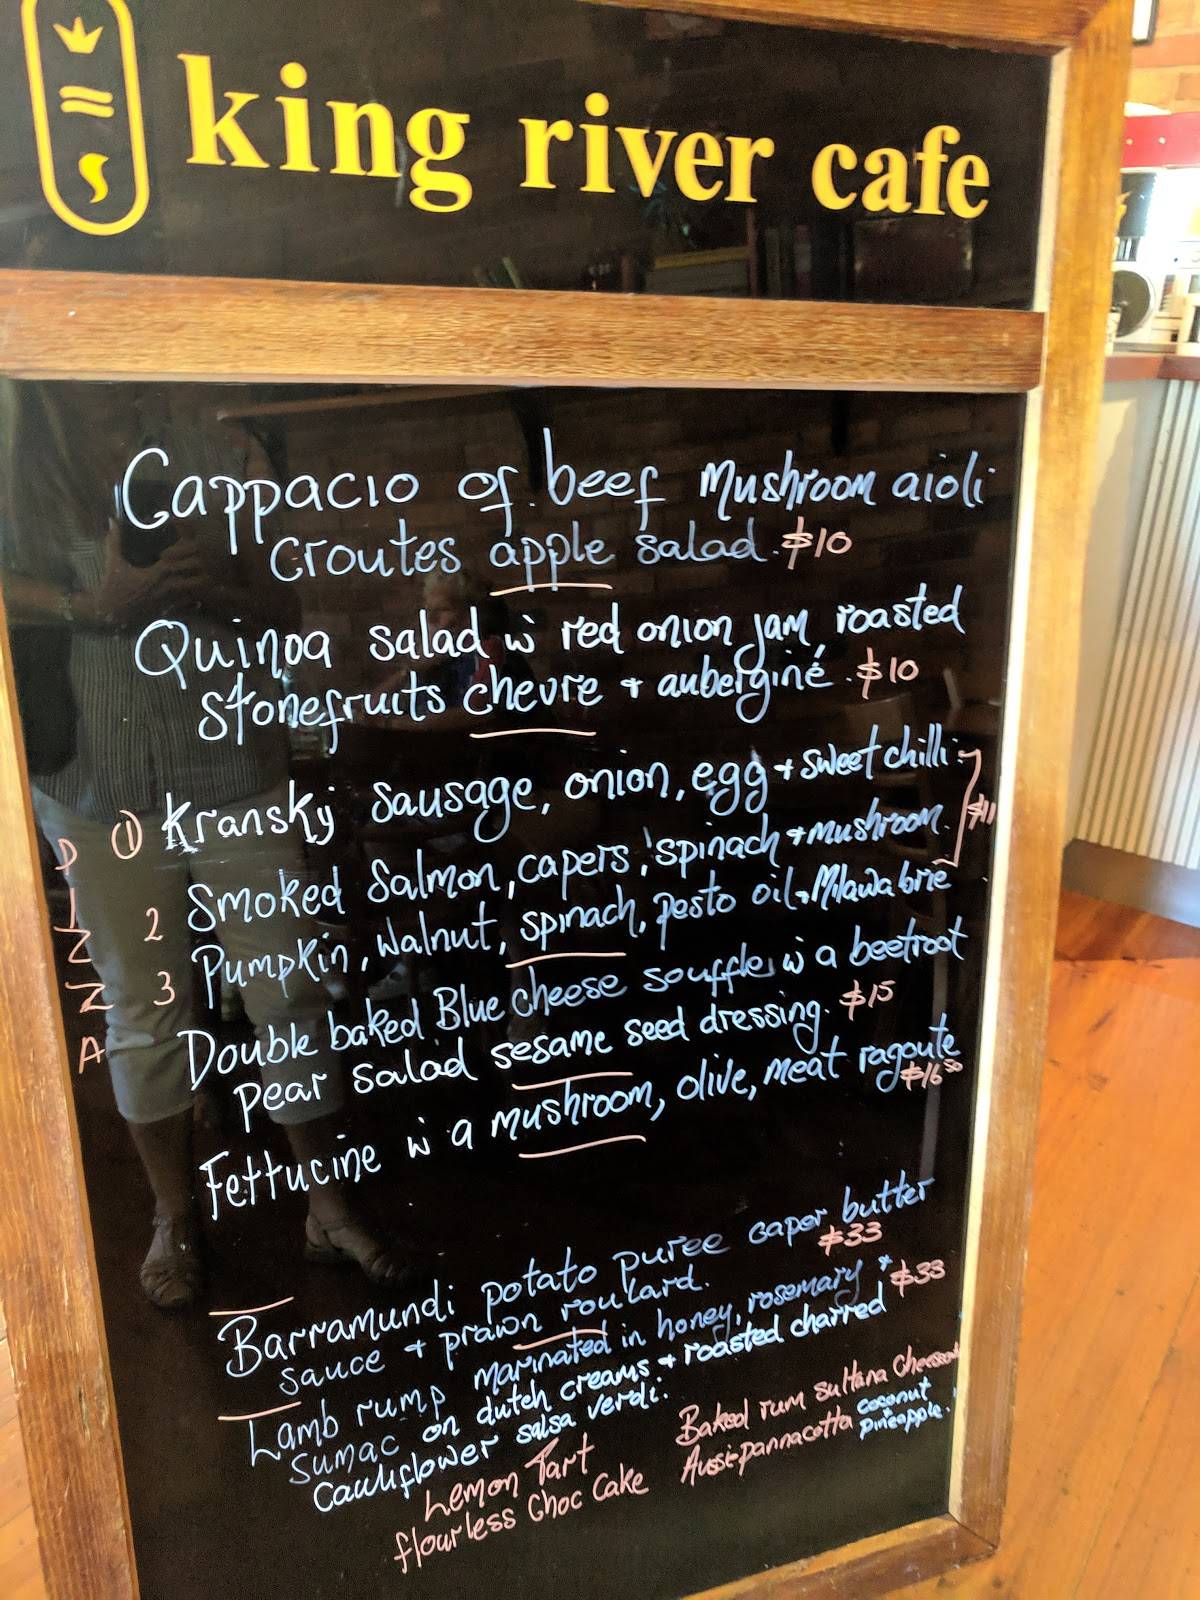 king river cafe
Cappacio of beef Mushroom aioli
croutes apple salad. $10
Quinoa salad w red onion jam, roasted
stonefruits chevre + aubergine. $10
PIZZA
1 Kransky Sausage, onion, egg + sweet chilli.
2 Smoked Salmon, capers, spinach + mushroom.
3 Pumpkin, walnut, spinach, pesto oil + Milawa brie
$11
Double baked Blue cheese souffle w a beetroot
pear salad sesame seed dressing. $15
Fettucine w a mushroom, olive, meat ragoute
$16 50
Barramundi potato puree caper butter
sauce + prawn roulard. $33
Lamb rump marinated in honey, rosemary +
sumac on dutch creams + roasted charred $33
Cauliflower salsa verdi.
Lemon Tart
flourless Choc Cake
Baked rum sultana
Aussie pannacotta coconut
pineapple.